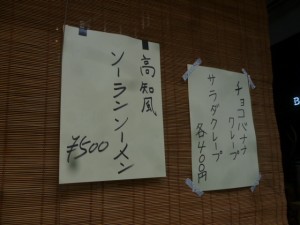 高知風
ソーランソーメン
¥500
チョコバナナ
クレープ
サラダクレープ
各400円